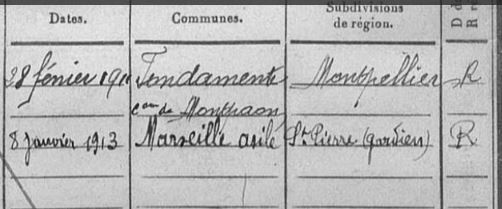 Dates.
Communes.
Subdivisions
de région.
D
R
28 février 191
Fondamente
Montpellier
R
Cne de Montpaon
8 Janvier 1913
Marseille asile
St Pierre (gardien)
R